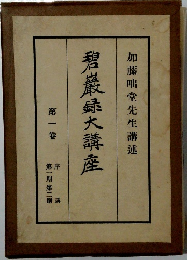 加藤咄堂先生講述
碧巖録大講座
第一卷
序講
第一則第二則